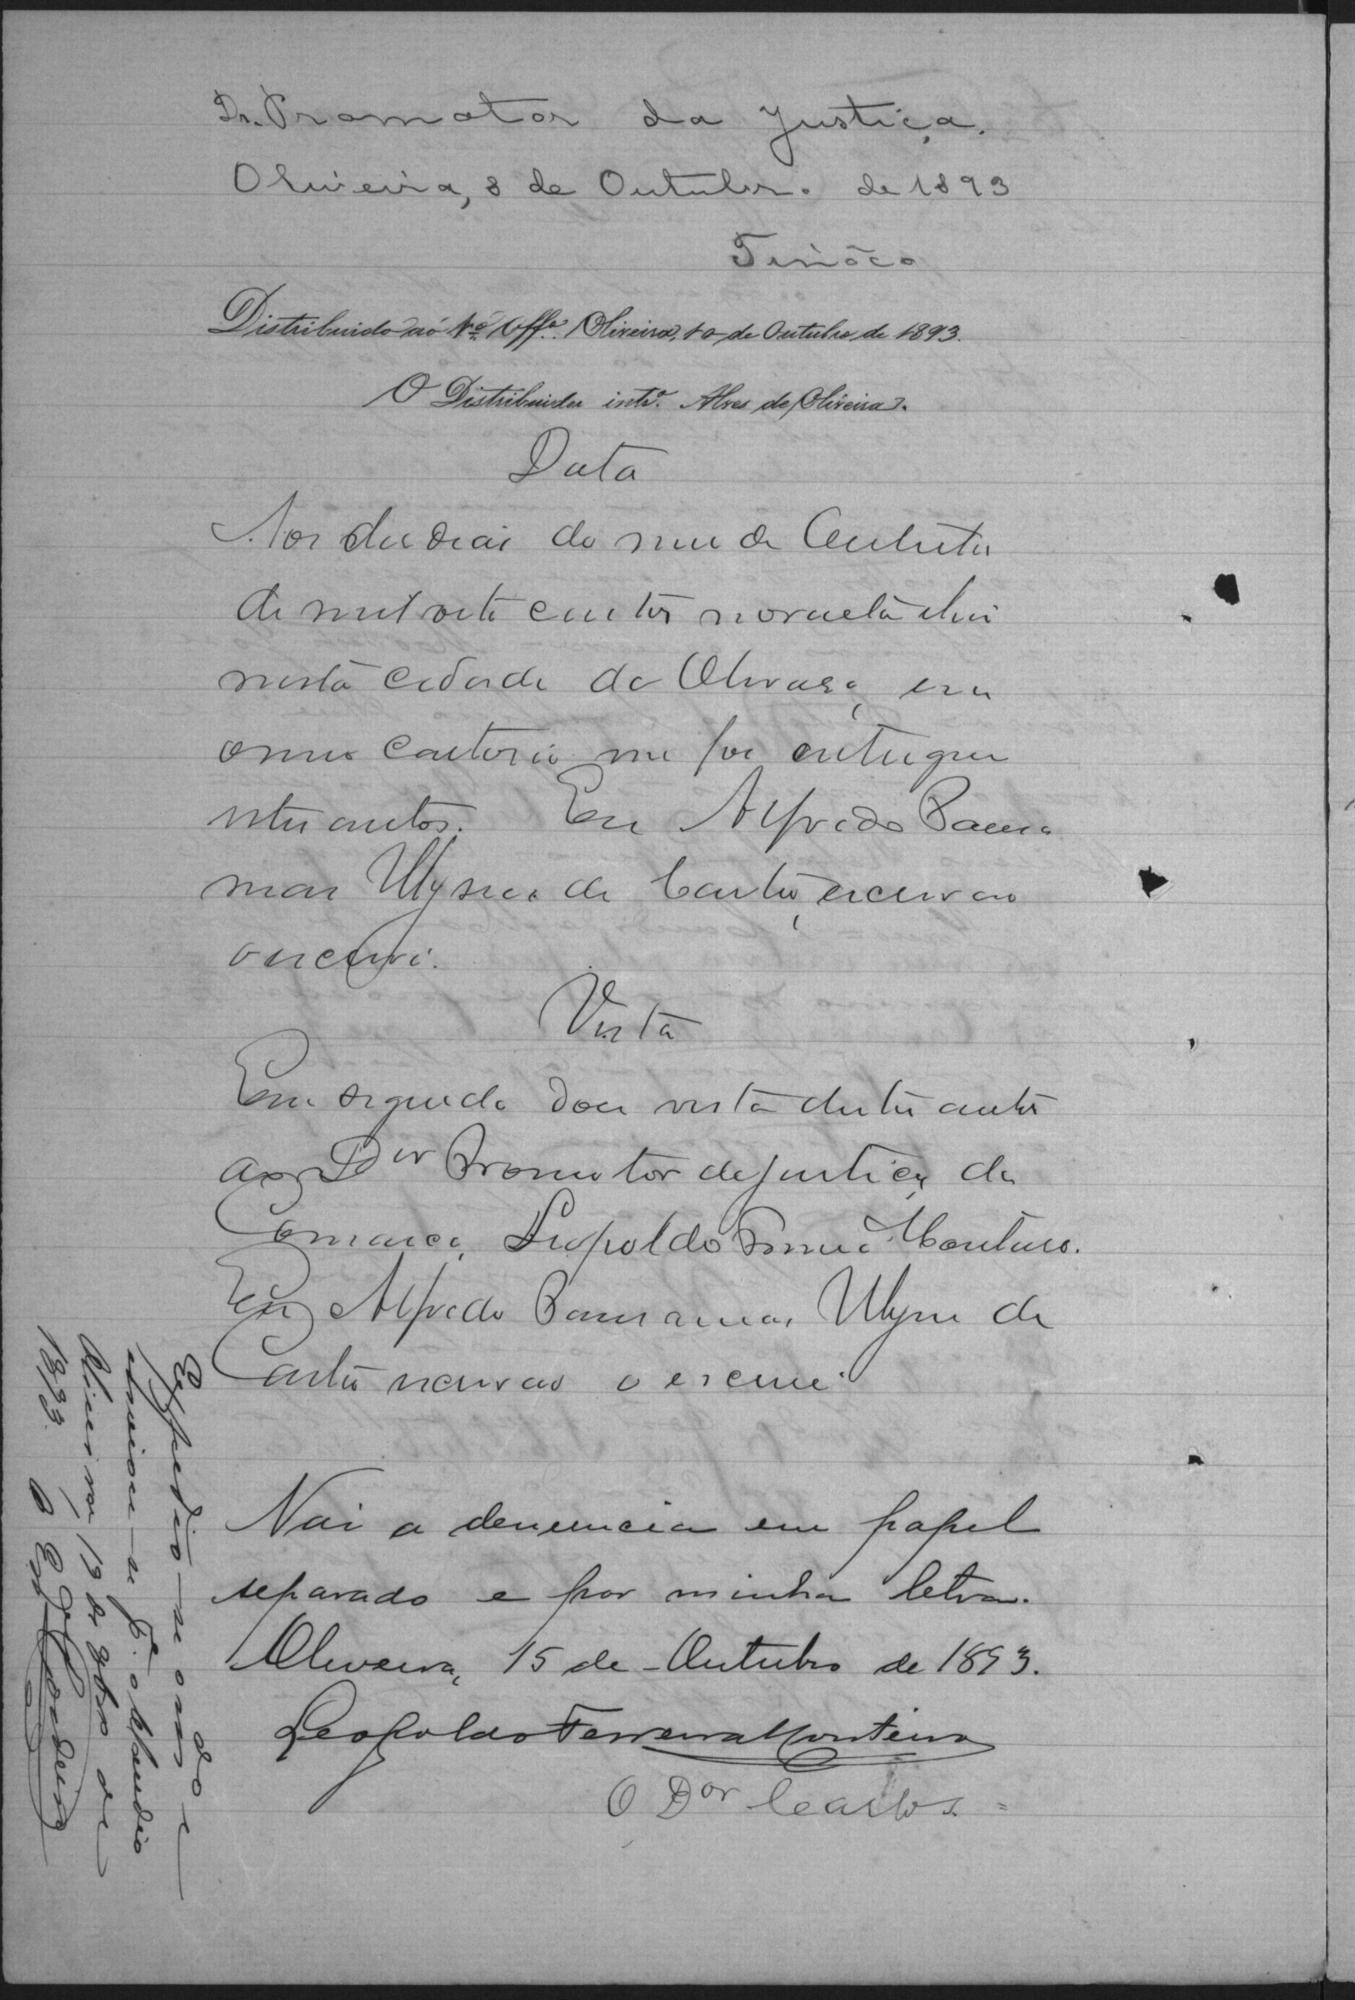 Dr. Promotor da Justiça.
Oliveira, 8 de Outubro de 1893
Tinôco
Distribuido aó 1º Offº. Oliveira, 10 de Outubro de 1893.
O Distribuidor intº. Alves de Oliveira.
Data
Aos dez dias do mez de Outubro
de mil oito centos noventa e tres
nesta cidade de Oliveira, em
o meu cartorio me foi entregue
estes autos. Eu Alfredo
Ulysses de Castro, escrivão
o escrevi.
Vista
Em seguida dou vista destes autos
ao Dor Promotor de justiça da
Comarca, Leopoldo Ferreira Monteiro.
Eu Alfredo Ulysses de
Castro escrivão o escrevi.
Vai a denuncia em papel
separado e por minha letra.
Oliveira, 15 de Outubro de 1893.
Leopoldo Ferreira Monteiro
O Dor Carlos
Expedio-se
se pª. o
Oliveira, 19 de de
1893. O